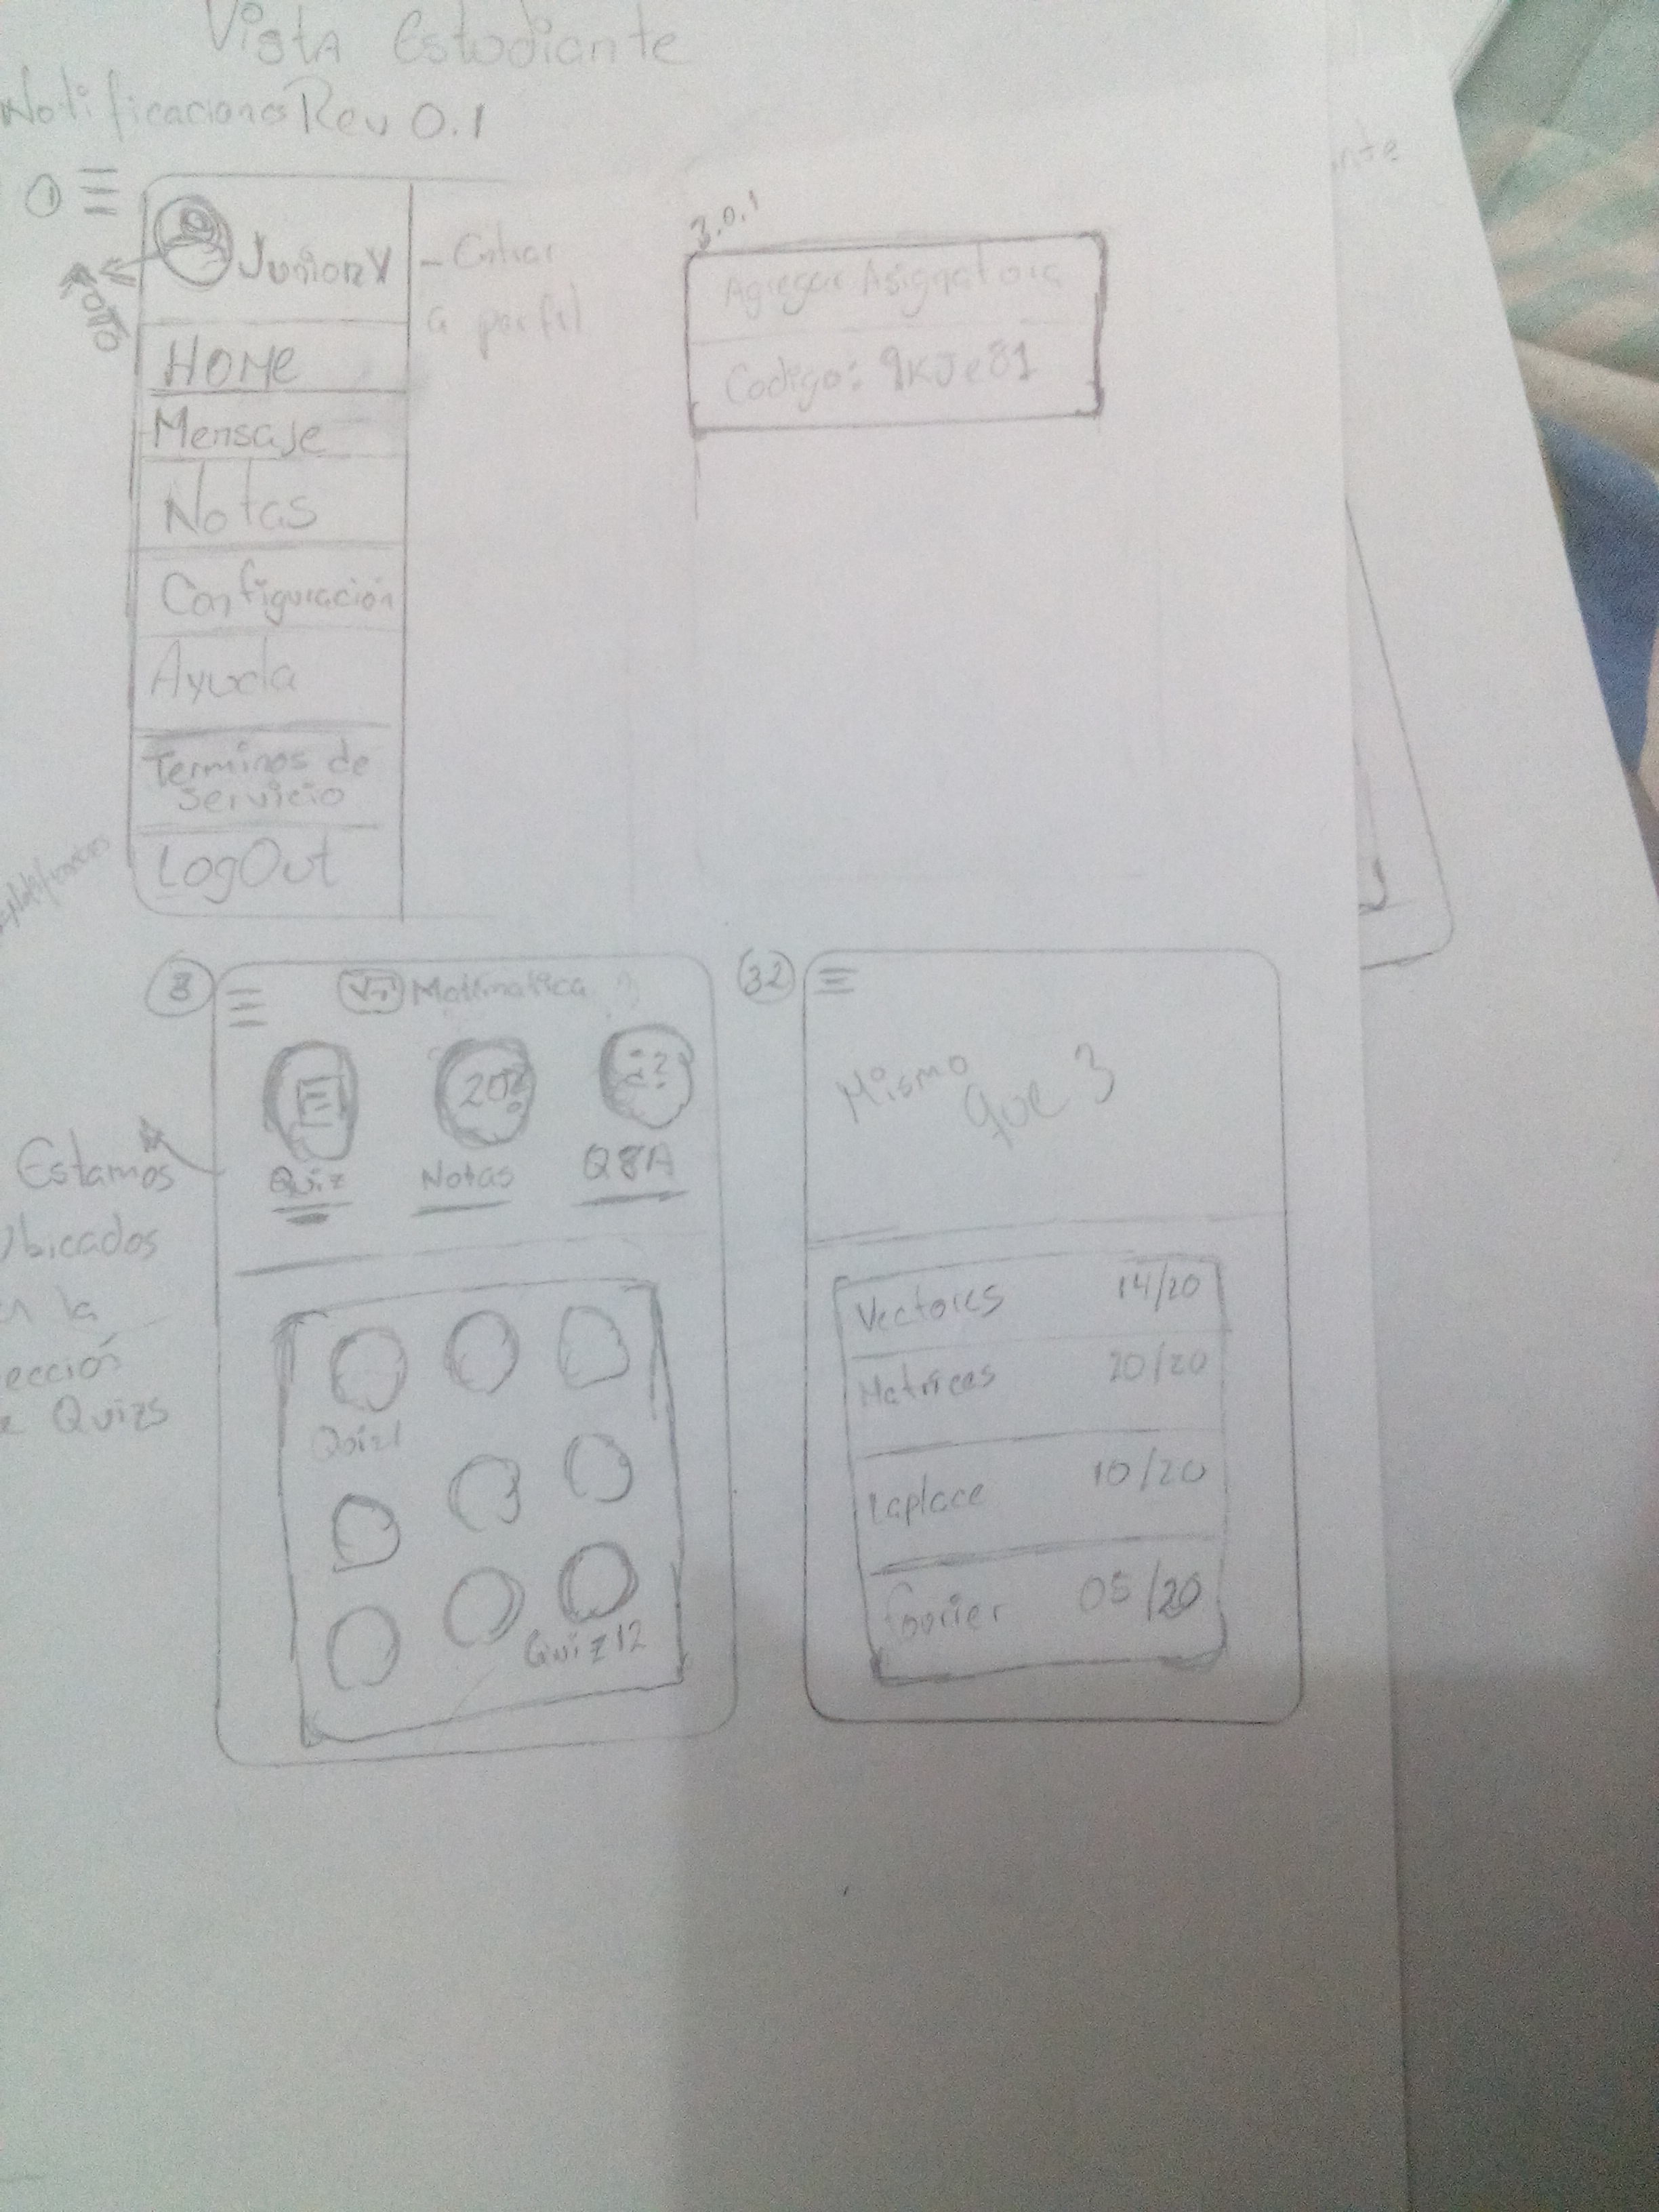 Vista Estudiante
Notificaciones Rev 0.1
1
JuniorV
Foto
- Entrar
a perfil
HOME
Mensaje
Notas
Configuración
Ayuda
Terminos de
servicio
LogOut
3.0.1
Agregar Asignatura
Codigo: 9KJe81
nte
3
Matematica
20
¿?
Quiz
Notas
Q&A
Estamos
Ubicados
en la
ección
e Quizs
Quiz1
Quiz12
32
Mismo
que 3
Vectores 14/20
Matrices 20/20
Laplace 10/20
Fourier 05/20